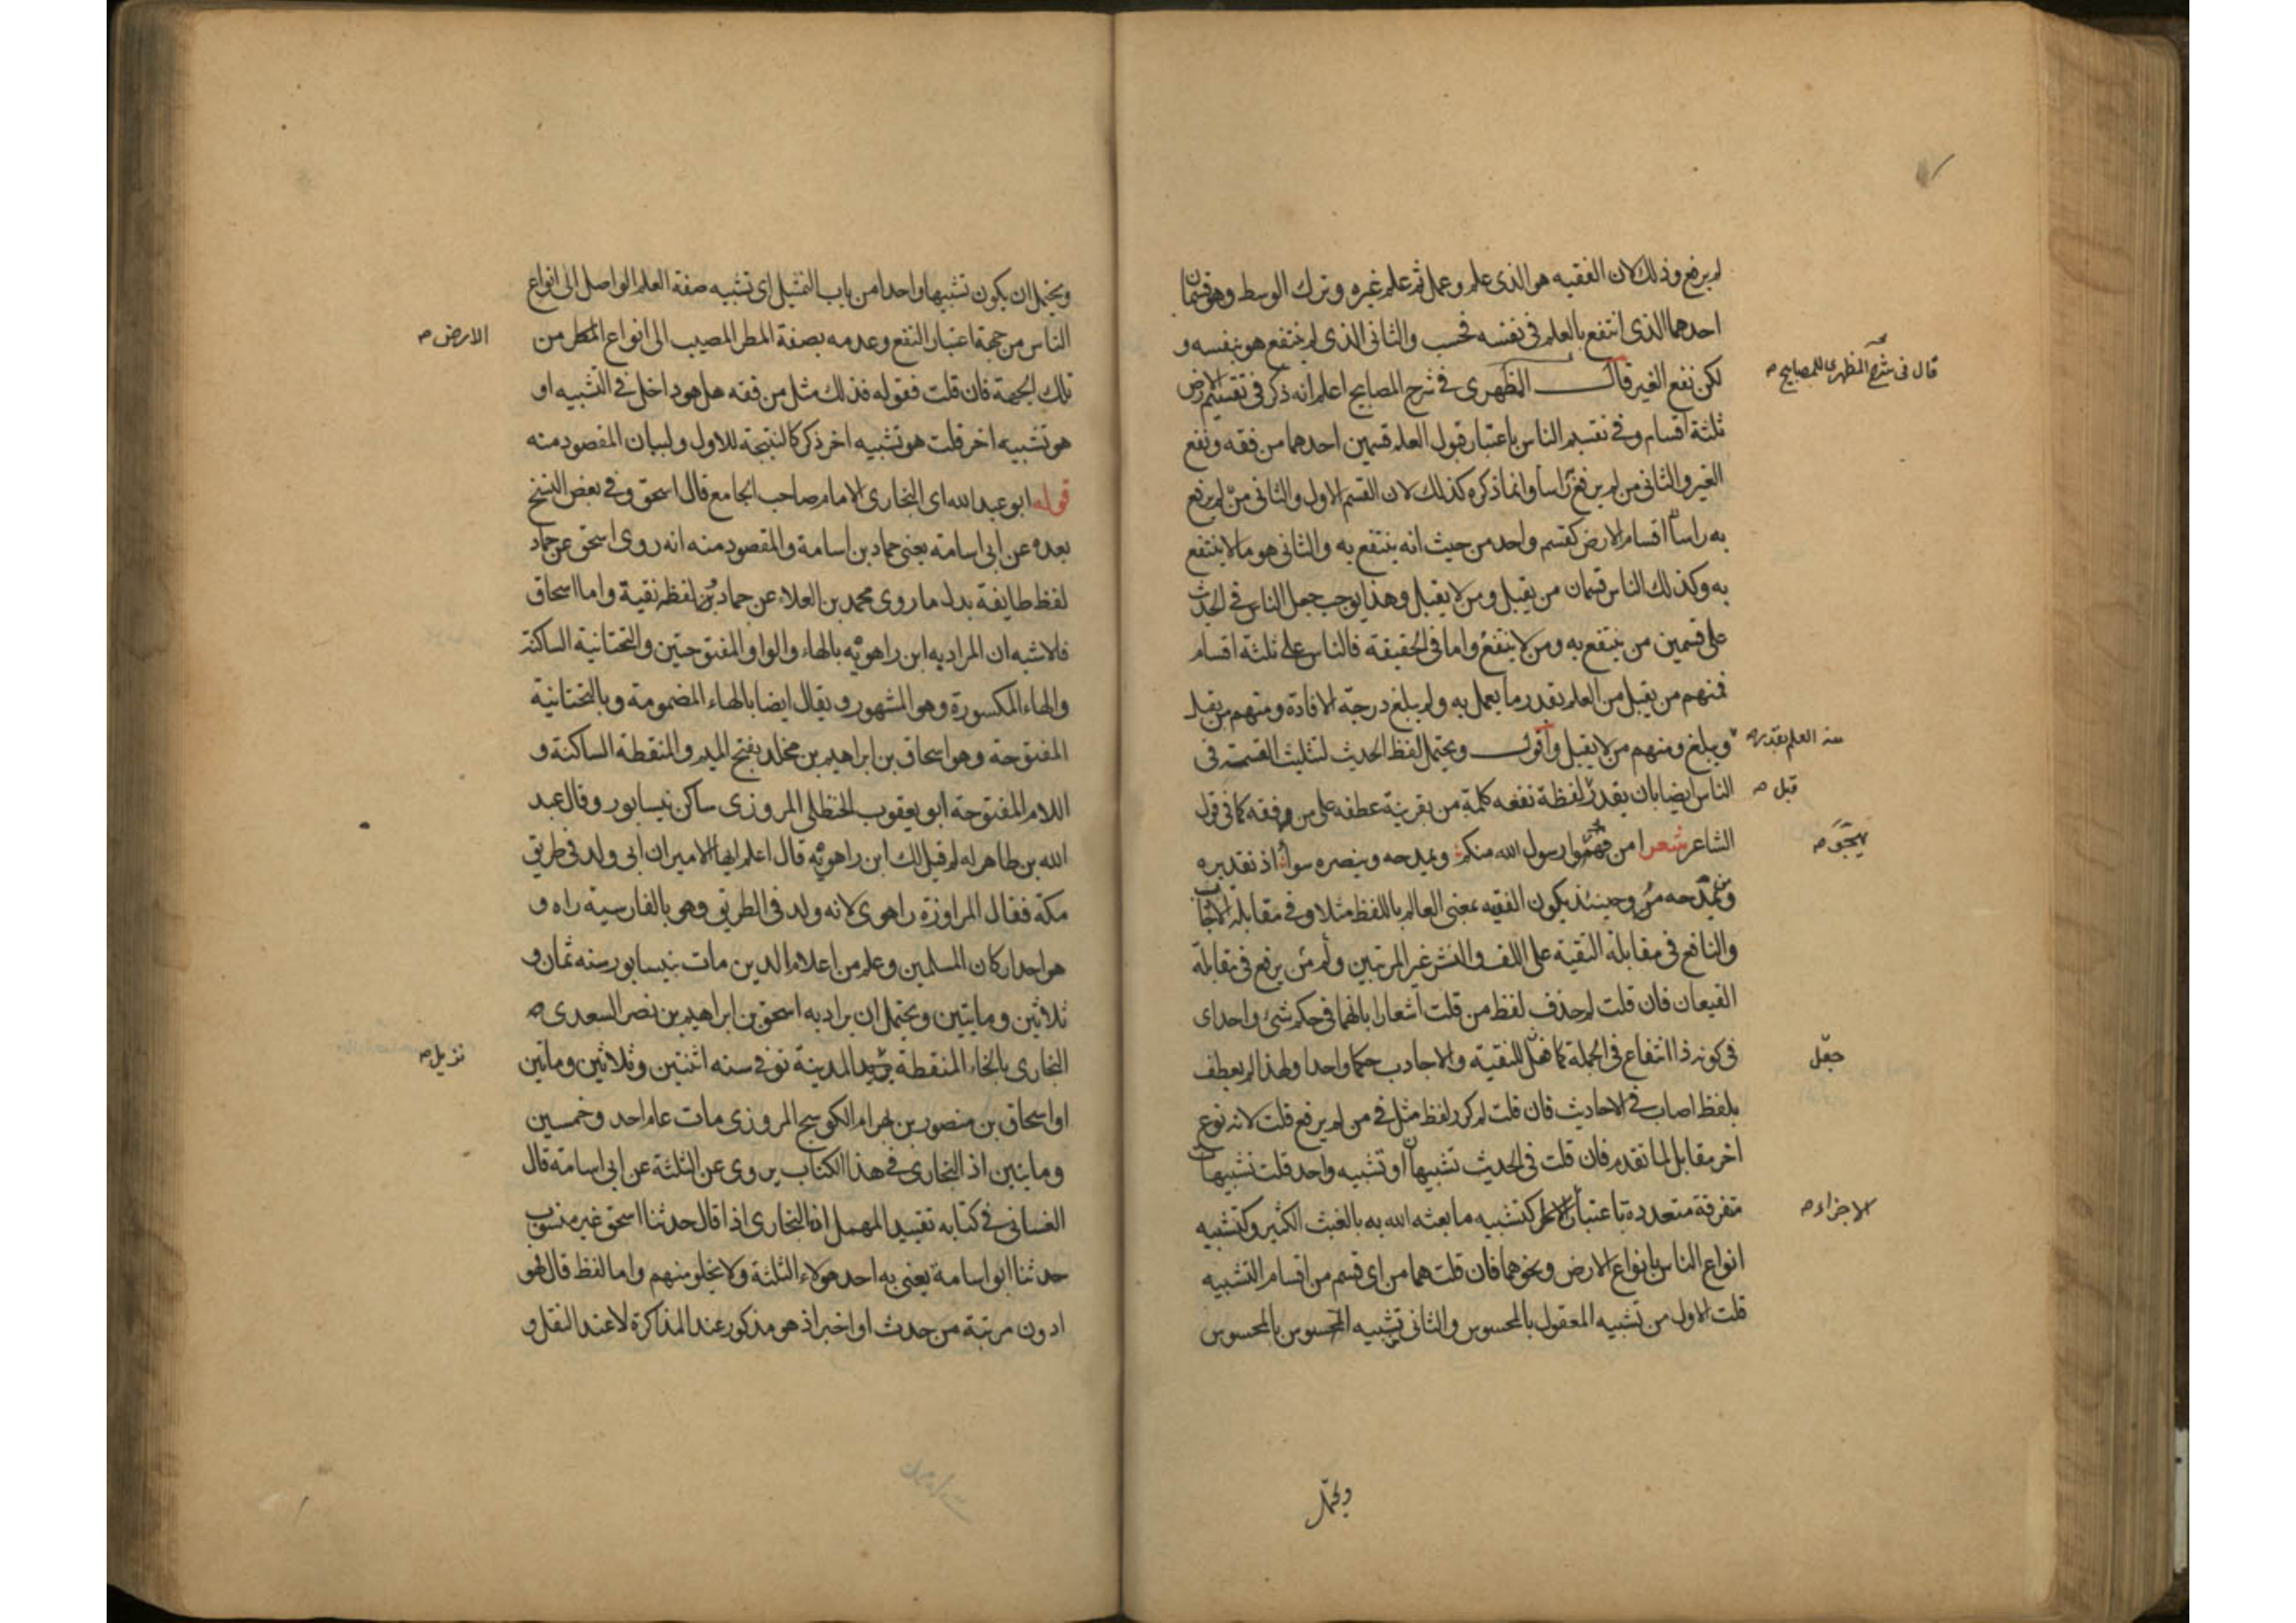 لم يرفع وذلك لان الفقيه هو الذى علم وعمل ثم علم غيره وترك الوسط وهو قسمان
احدهما الذى انتفع بالعلم فى نفسه فحسب والثانى الذى لم ينتفع هو بنفسه و
لكن نفع الغير قال المظهرى فى شرح المصابيح اعلم انه ذكر فى تقسيم الارض
قال فى شرح المظهرى للمصابيح صح
ثلثة اقسام وفى تقسيم الناس باعتبار قبول العلم قسمين احدهما من فقه ونفع
الغير والثانى من لم يرفع راسا وانما ذكره كذلك لان القسم الاول والثانى من لم يرفع
به راسا اقسام الارض كقسم واحد من حيث انه ينتفع به والثانى هو ما لا ينتفع
به وكذلك الناس قسمان من يقبل ومن لا يقبل وهذا يوجب جعل الناس فى الحديث
على قسمين من ينتفع به ومن لا ينتفع واما فى الحقيقة فالناس على ثلثة اقسام
فمنهم من يقبل من العلم بقدر ما يعمل به ولم يبلغ درجة الافادة ومنهم من يقبل
ويبلغ ومنهم من لا يقبل واقول ويحتمل لفظ الحديث لتثليث القسمة فى
من العلم بقدر صح
الناس ايضا بان يقدر لفظة نفعه كلمة من بقرينة عطفه على من فقه كما فى قول
قبل صح
الشاعر شعر امن رسول الله منكم ويمدحه وينصره سواء اذ تقديره
يهجو صح
ومن يمدحه وحينئذ يكون الفقيه بمعنى العالم باللفظ مثلا وفى مقابلة الاجادب
والنافع فى مقابلة النقية على اللف والنشر غير المرتبين ولم من يرفع فى مقابلة
القيعان فان قلت لم حذف لفظ من قلت اشعارا بانهما فى حكم شىء واحد اى
فى كونه ذا انتفاع فى الجملة كما للنقية والاجادب حكما واحدا ولهذا لم يعطف
جعل
بلفظ اصاب فى الاحاديث فان قلت لم كرر لفظ مثل فى من لم يرفع قلت لانه نوع
اخر مقابل لما تقدم فان قلت فى الحديث تشبيهان او تشبيه واحد قلت تشبيهات
متفرقة متعددة باعتبار كتشبيه ما بعثه الله به بالغيث الكثير وكتشبيه
الاجزاء صح
انواع الناس بانواع الارض ونحوهما فان قلت هما من اى قسم من اقسام التشبيه
قلت الاول من تشبيه المعقول بالمحسوس والثانى تشبيه المحسوس بالمحسوس
ويحتمل
ويحتمل ان يكون تشبيها واحدا من باب التمثيل اى تشبيه صفة العلم الواصل الى انواع
الناس من جهة اعتبار النفع وعدمه بصفة المطر المصيب الى انواع المطر من
الارض صح
تلك الجهة فان قلت فقوله فذلك مثل من فقه هل هو داخل فى التشبيه او
هو تشبيه اخر قلت هو تشبيه اخر ذكر كالنتيجة للاول ولبيان المقصود منه
قوله ابو عبد الله اى البخارى الامام صاحب الجامع قال اسحق وفى بعض النسخ
بعده عن ابى اسامة يعنى حماد بن اسامة والمقصود منه انه روى اسحق عن حماد
لفظ طايفة بدل ما روى محمد بن العلاء عن حماد من لفظ نقية واما اسحاق
فالاشبه ان المراد به ابن راهويه بالهاء والواو المفتوحتين والتحتانية الساكنة
والهاء المكسورة وهو المشهور ويقال ايضا بالهاء المضمومة وبالتحتانية
المفتوحة وهو اسحاق بن ابراهيم بن مخلد بفتح الميم والمنقطة الساكنة و
اللام المفتوحة ابو يعقوب الحنظلى المروزى ساكن نيسابور وقال عبد
الله بن طاهر له لم قيل لك ابن راهويه قال اعلم ايها الامير ان ابى ولد فى طريق
مكة فقال المراوزة راهوى لانه ولد فى الطريق وهو بالفارسية راه و
هو احد اركان المسلمين وعلم من اعلام الدين مات بنيسابور سنه ثمان و
ثلاثين ومايتين ويحتمل ان يراد به اسحق بن ابراهيم بن نصر السعدى
البخارى بالخاء المنقطة المدينة توفى سنه اثنتين وثلاثين وماتين
نزيل صح
او اسحاق بن منصور بن بهرام الكوسج المروزى مات عام احد وخمسين
وماتين اذ البخارى فى هذا الكتاب يروى عن الثلثة عن ابى اسامة قال
الغسانى فى كتابه تقييد المهمل ان البخارى اذا قال حدثنا اسحق غير منسوب
حدثنا ابو اسامة يعنى به احد هولاء الثلثة ولا يخلو منهم واما لفظ قال فهو
ادون مرتبة من حدث او اخبر اذ هو مذكور عند المذاكرة لا عند النقل و